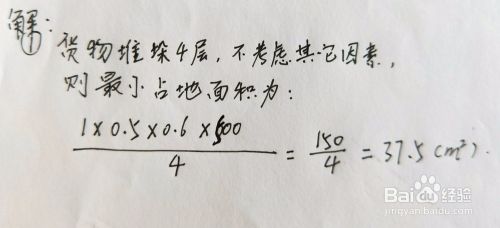 解:
① 货物堆垛4层,不考虑其它因素,
则最小占地面积为:
1×0.5×0.6×500 / 4 = 150 / 4 = 37.5 (m²).
Baidu经验
jingyan.baidu.com